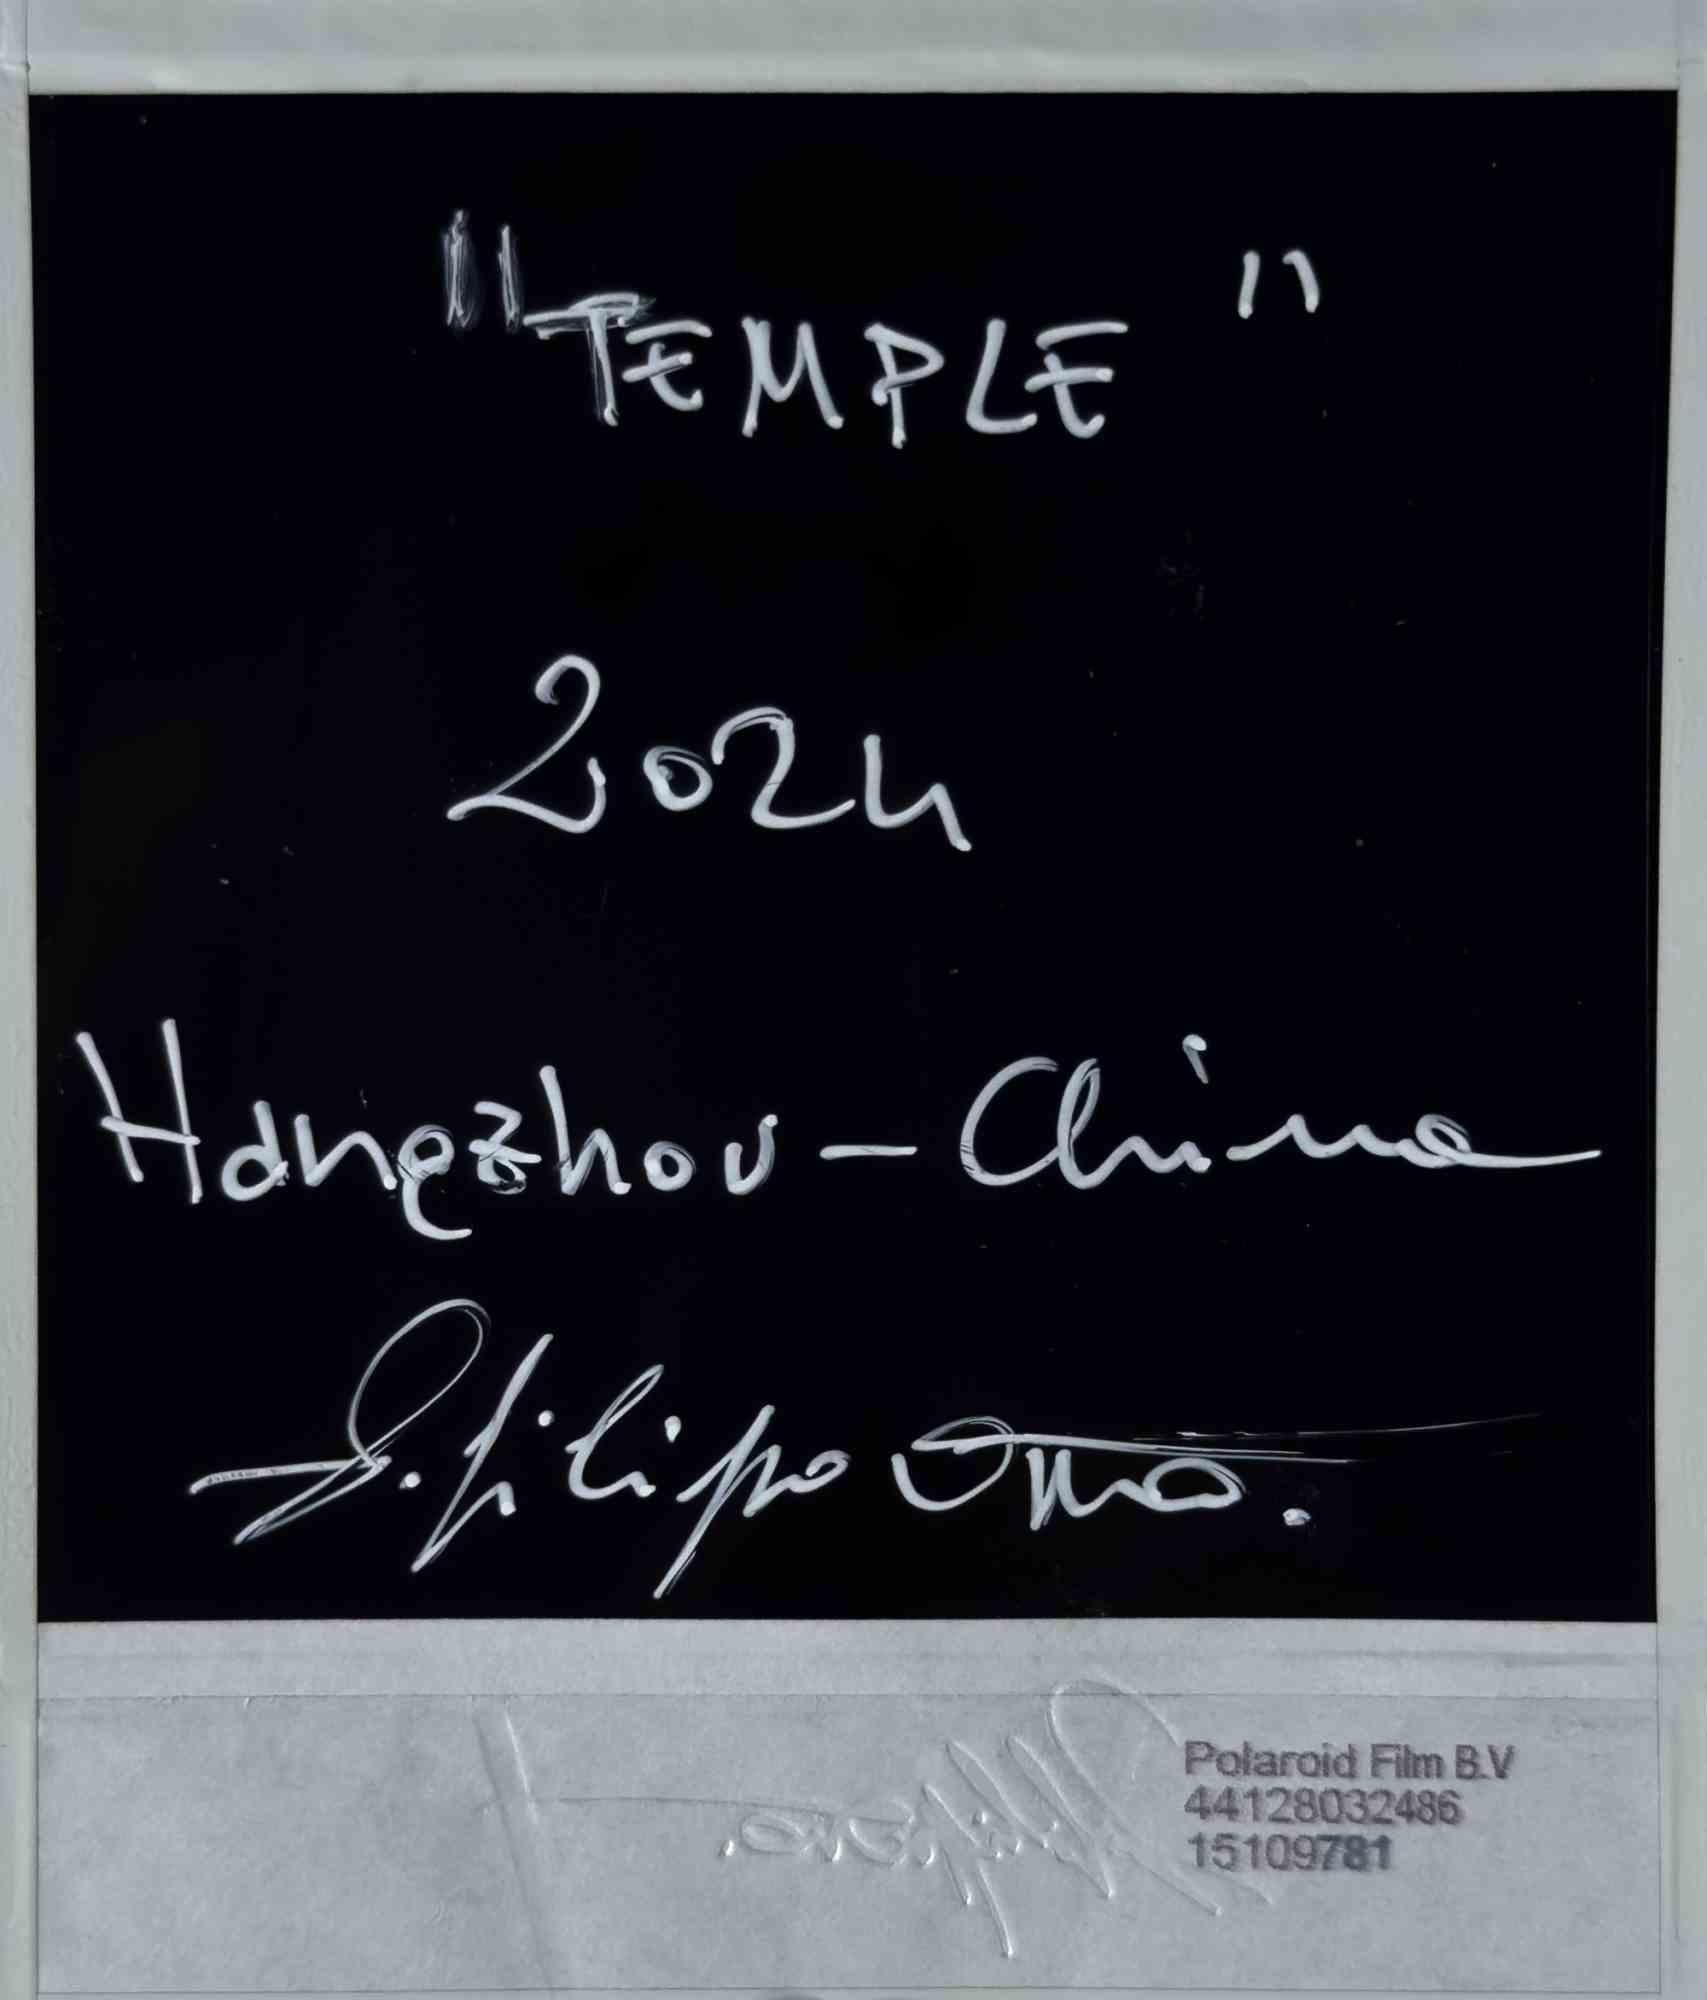 "TEMPLE"
2024
Hangzhou - China
Polaroid Film B.V
44128032486
15109781